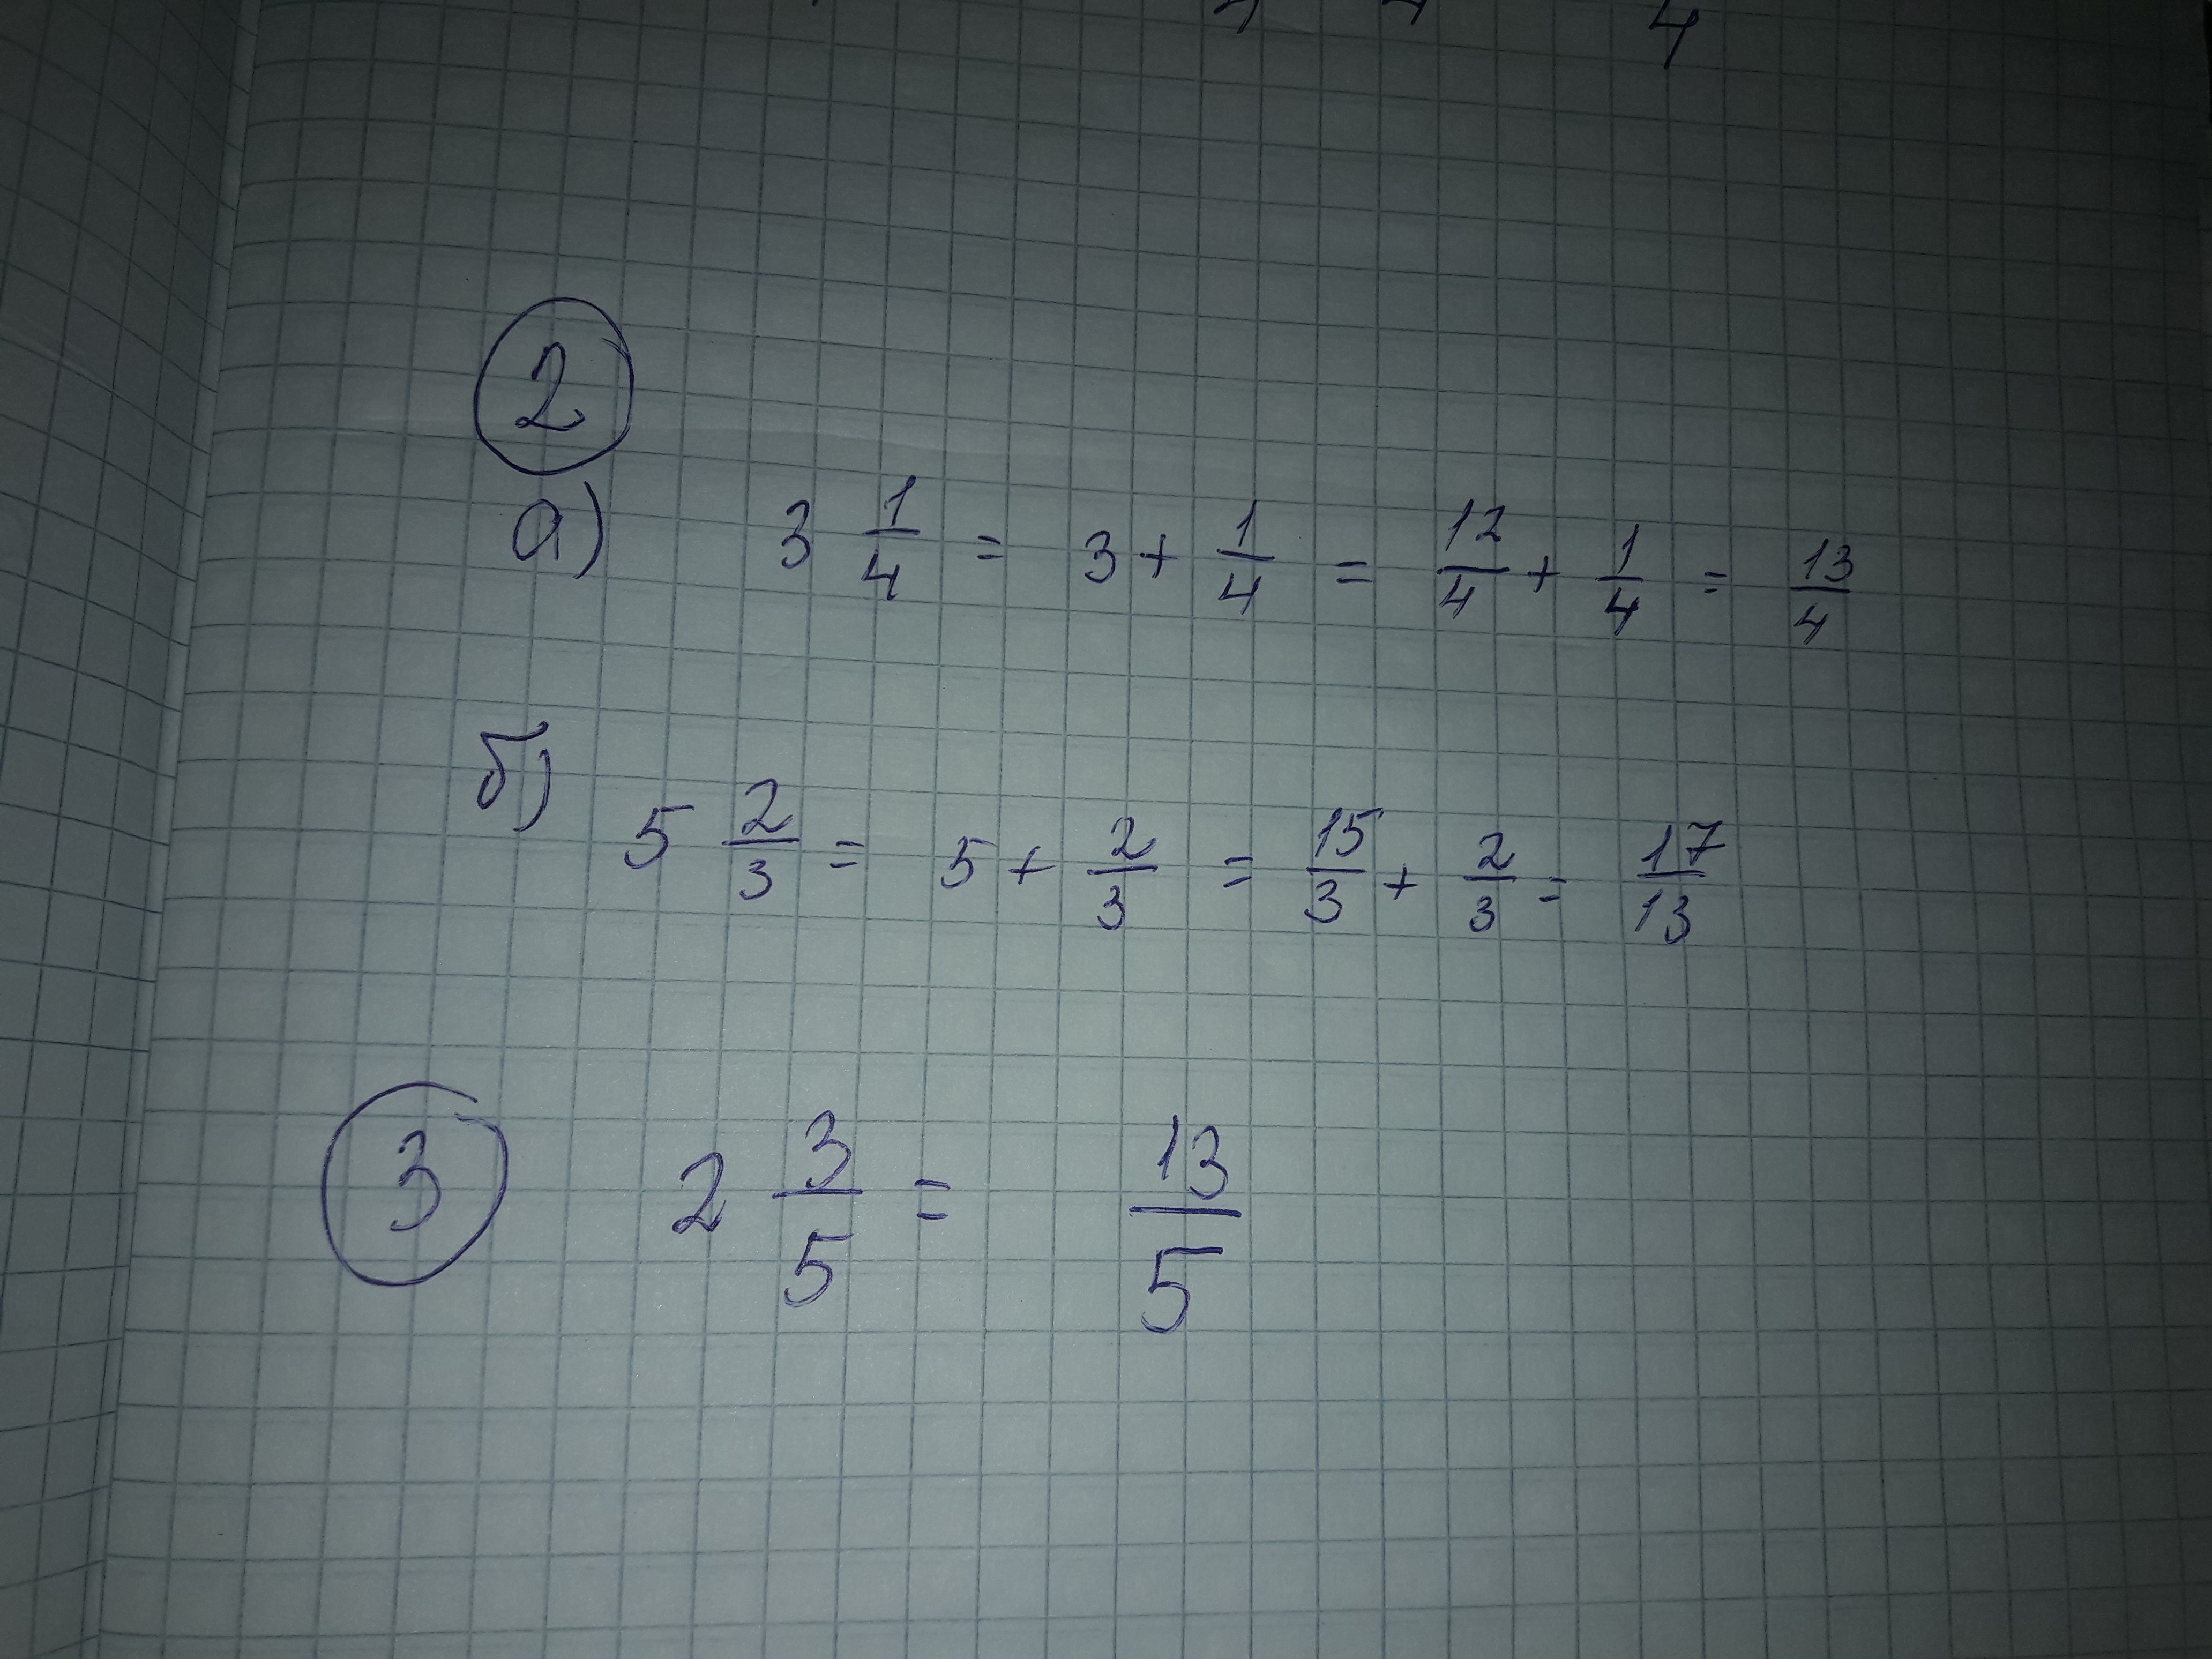 4
2
а) 3 1/4 = 3 + 1/4 = 12/4 + 1/4 = 13/4
б) 5 2/3 = 5 + 2/3 = 15/3 + 2/3 = 17/13
3 2 3/5 = 13/5